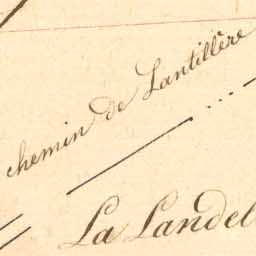 chemin de Lantillère
La Landel